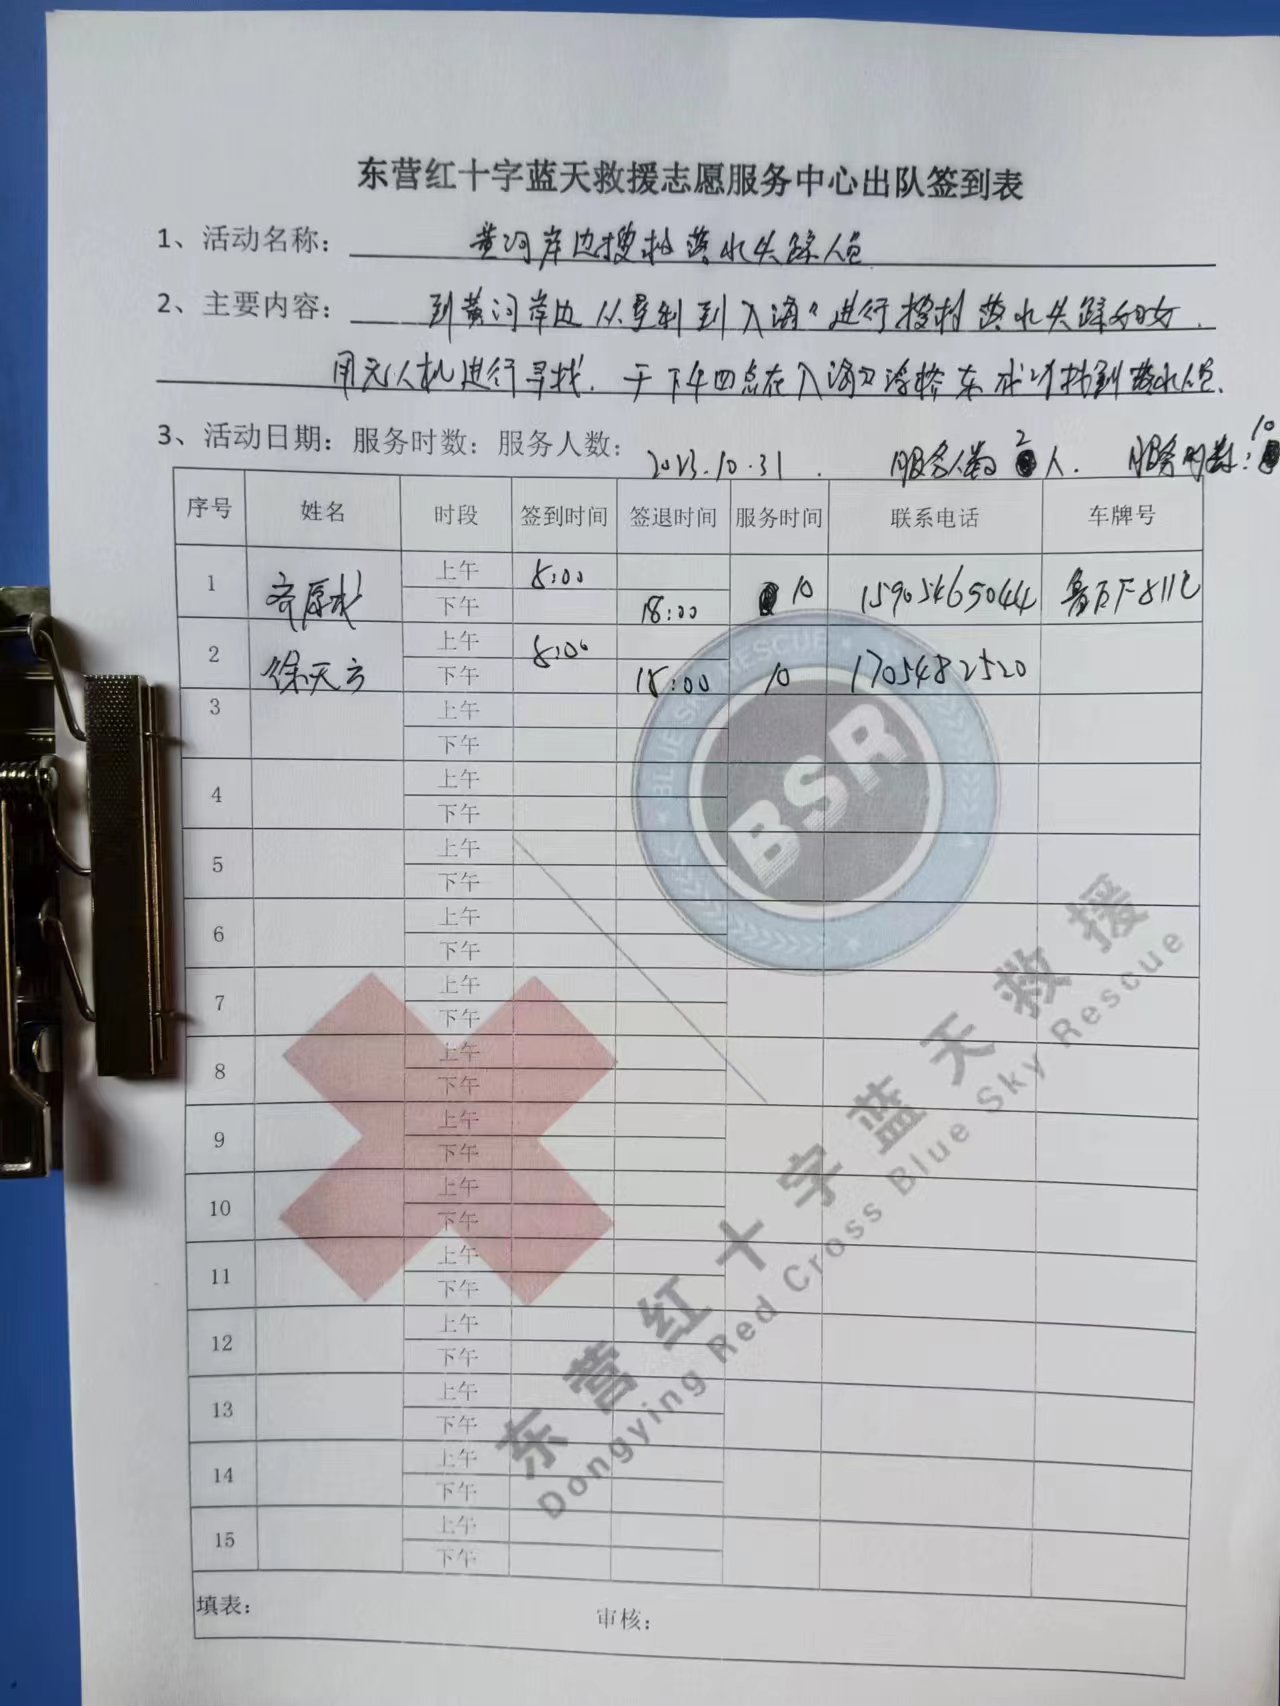 东营红十字蓝天救援志愿服务中心出队签到表
1、活动名称: 黄河岸边搜救落水失踪人员
2、主要内容: 到黄河岸边从垦利到入海口进行搜救落水失踪妇女.
用无人机进行寻找. 于下午四点在入海口浮桥东成功找到落水人员.
3、活动日期: 服务时数: 服务人数: 2023.10.31. 服务人数 2人. 服务时数: 10
序号 姓名 时段 签到时间 签退时间 服务时间 联系电话 车牌号
1 上午 8:00
下午 18:00 10 15905465044
2 徐天方 上午 8:00
下午 18:00 10 1705482520
3 上午
下午
4 上午
下午
5 上午
下午
6 上午
下午
7 上午
下午
8 上午
下午
9 上午
下午
10 上午
下午
11 上午
下午
12 上午
下午
13 上午
下午
14 上午
下午
15 上午
下午
填表: 审核:
BLUE SKY RESCUE
BSR
东营红十字蓝天救援
Dongying Red Cross Blue Sky Rescue